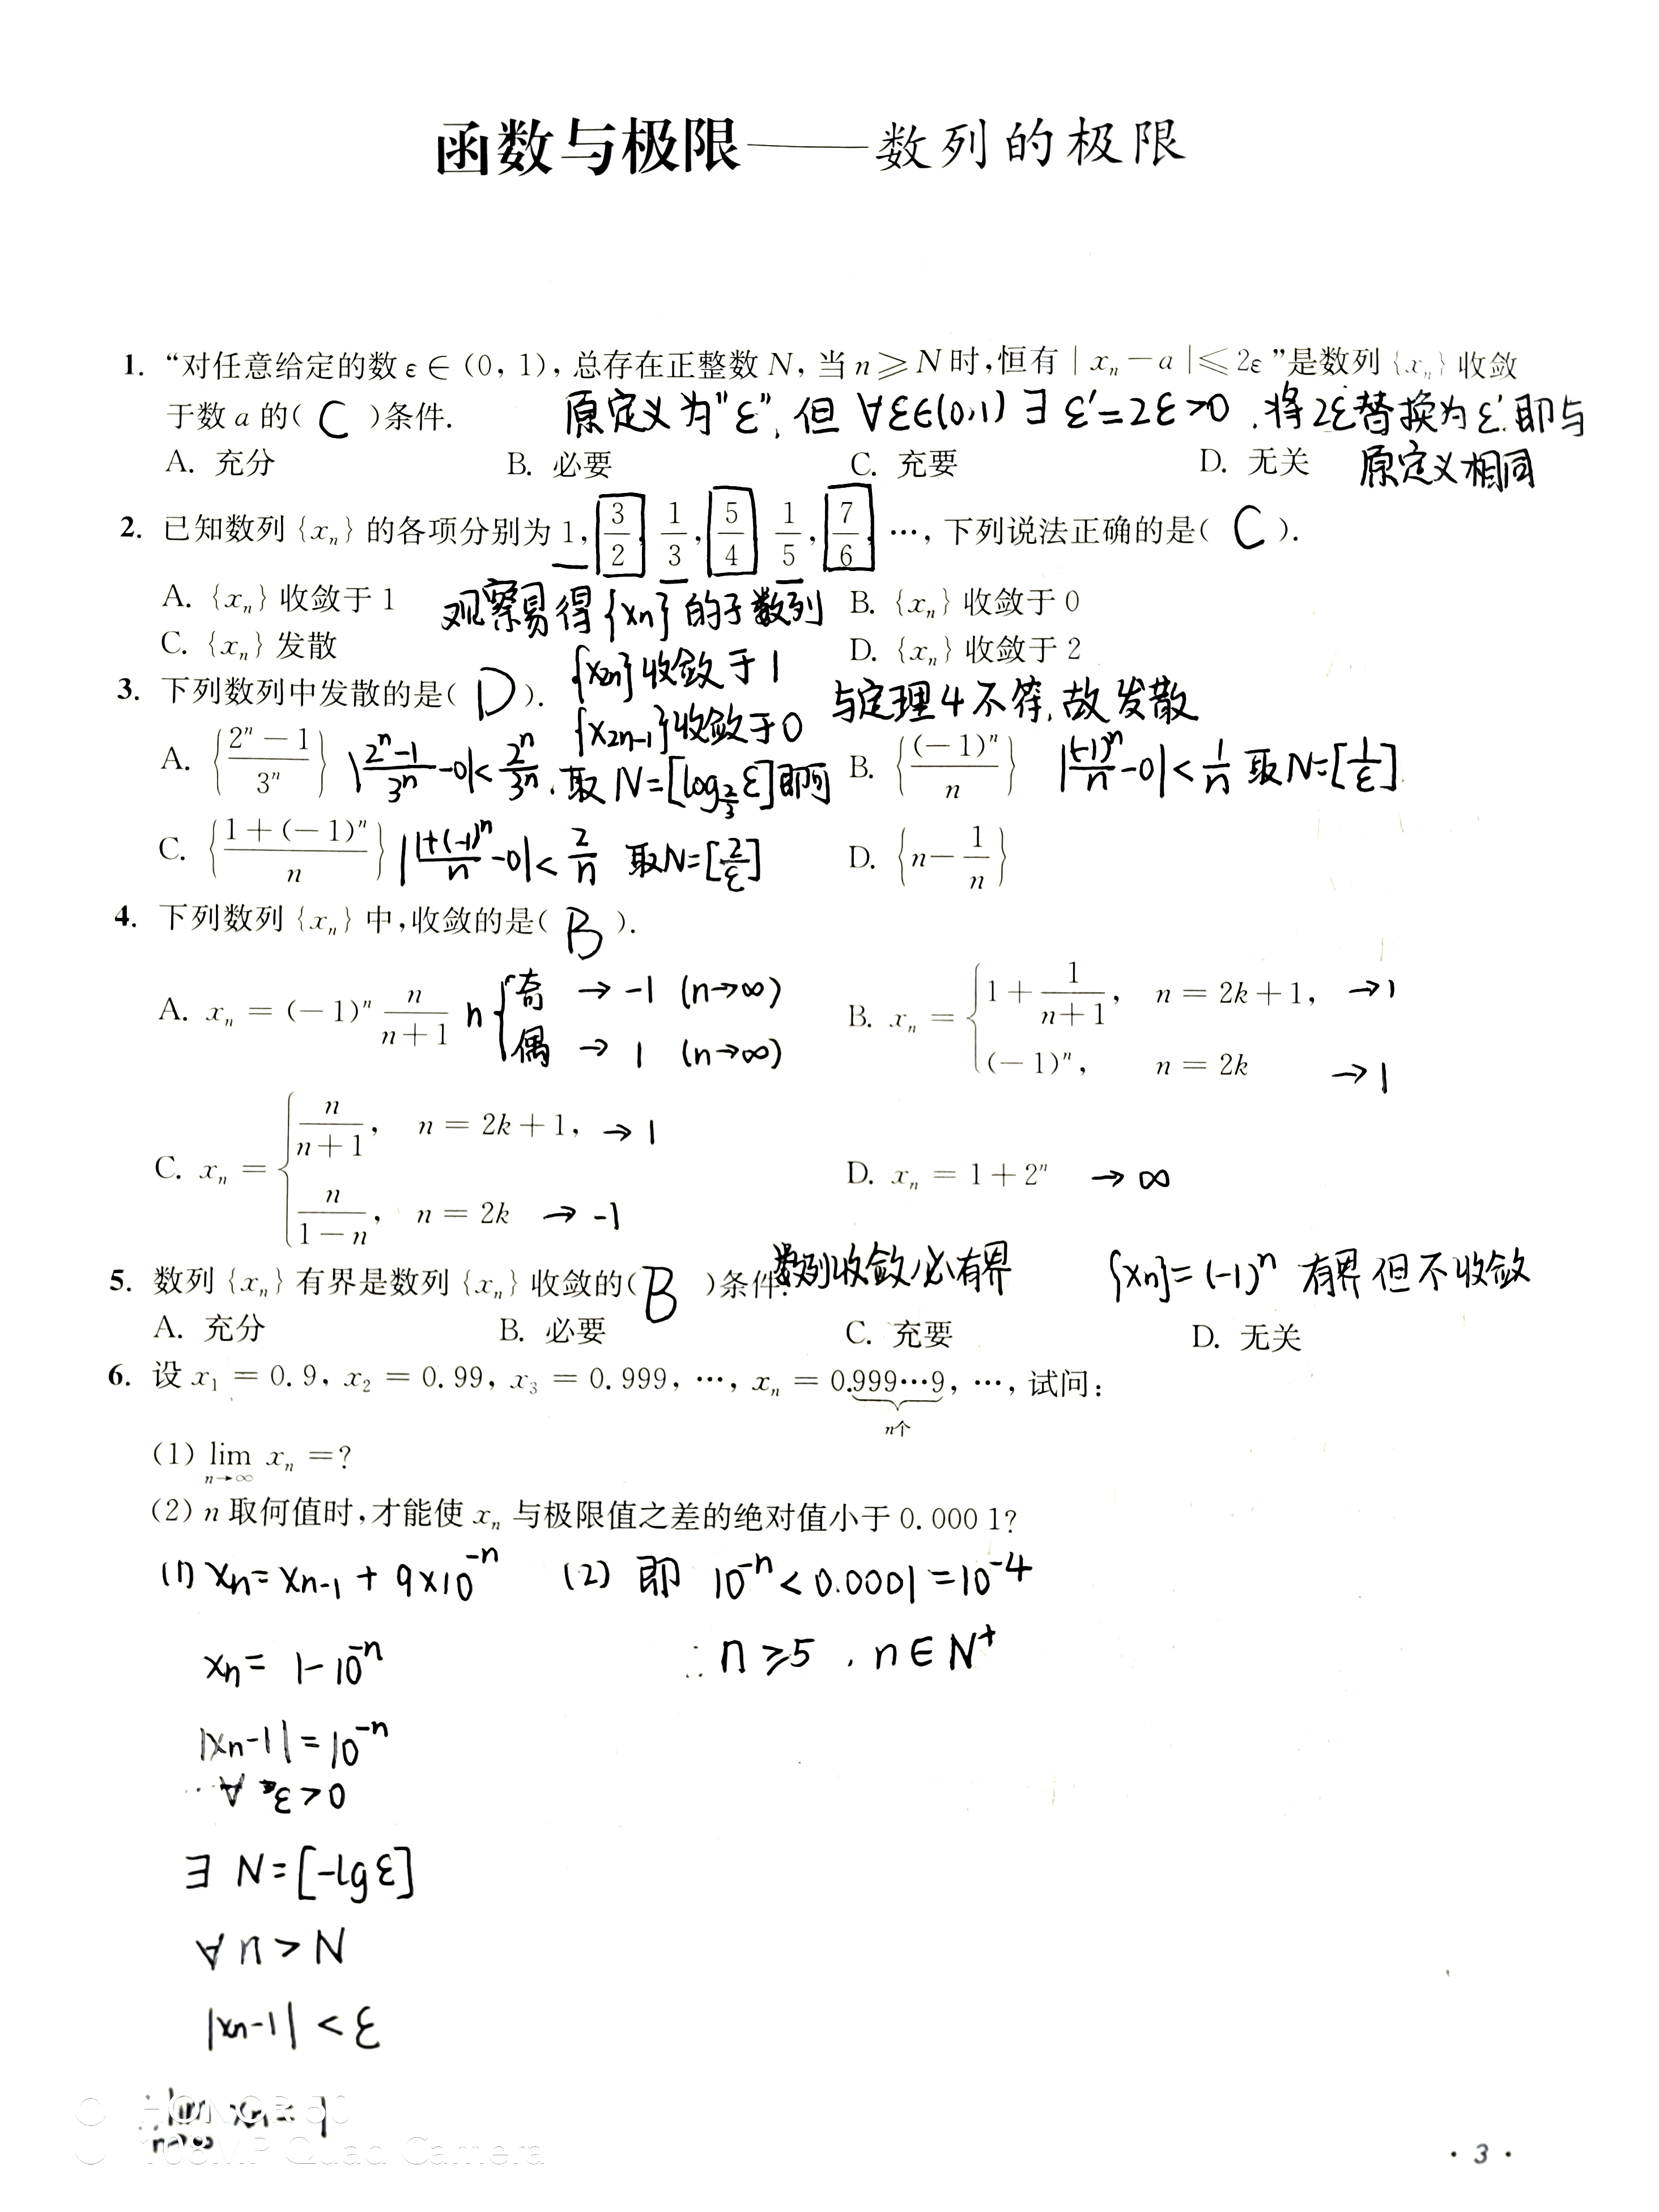 函数与极限——数列的极限
1. “对任意给定的数 ε∈(0, 1), 总存在正整数 N, 当 n≥N 时,恒有 |xₙ−a|≤2ε”是数列{xₙ}收敛
于数 a 的( C )条件. 原定义为"ε", 但 ∀ε∈(0,1) ∃ ε'=2ε>0 ,将2ε替换为ε'.即与
A. 充分 B. 必要 C. 充要 D. 无关 原定义相同
2. 已知数列{xₙ}的各项分别为 1, 3/2, 1/3, 5/4, 1/5, 7/6, …, 下列说法正确的是( C ).
A. {xₙ}收敛于 1 观察易得{xn}的子数列 B. {xₙ}收敛于 0
C. {xₙ}发散 {x2n}收敛于1 D. {xₙ}收敛于 2
3. 下列数列中发散的是( D ). {x2n-1}收敛于0 与定理4不符,故发散
A. {(2ⁿ−1)/3ⁿ} |(2ⁿ-1)/3ⁿ-0|<2ⁿ/3ⁿ, 取N=[log_{2/3} ε]即可 B. {(−1)ⁿ/n} |(-1)ⁿ/n-0|<1/n 取N=[1/ε]
C. {(1+(−1)ⁿ)/n} |(1+(-1)ⁿ)/n-0|<2/n 取N=[2/ε] D. {n−1/n}
4. 下列数列{xₙ}中,收敛的是( B ).
A. xₙ = (−1)ⁿ n/(n+1) n{奇 → -1 (n→∞) B. xₙ = {1+1/(n+1), n = 2k+1, →1
偶 → 1 (n→∞) (−1)ⁿ, n = 2k →1
C. xₙ = {n/(n+1), n = 2k+1, → 1
n/(1−n), n = 2k → -1 D. xₙ = 1+2ⁿ → ∞
5. 数列{xₙ}有界是数列{xₙ}收敛的( B )条件. 数列收敛必有界 {xn}=(-1)ⁿ 有界但不收敛
A. 充分 B. 必要 C. 充要 D. 无关
6. 设 x₁ = 0.9, x₂ = 0.99, x₃ = 0.999, …, xₙ = 0.999…9, …, 试问:
n个
(1) lim xₙ =?
n→∞
(2) n 取何值时,才能使 xₙ 与极限值之差的绝对值小于 0.000 1?
(1) xn = xn-1 + 9×10⁻ⁿ (2) 即 10⁻ⁿ<0.0001=10⁻⁴
xn = 1-10⁻ⁿ ∴n≥5 , n∈N⁺
|xn-1|=10⁻ⁿ
∴∀ ε>0
∃ N=[-lgε]
∀ n>N
|xn-1|<ε
∴lim xn=1
n→∞
HONOR 50
108MP Quad Camera
· 3 ·